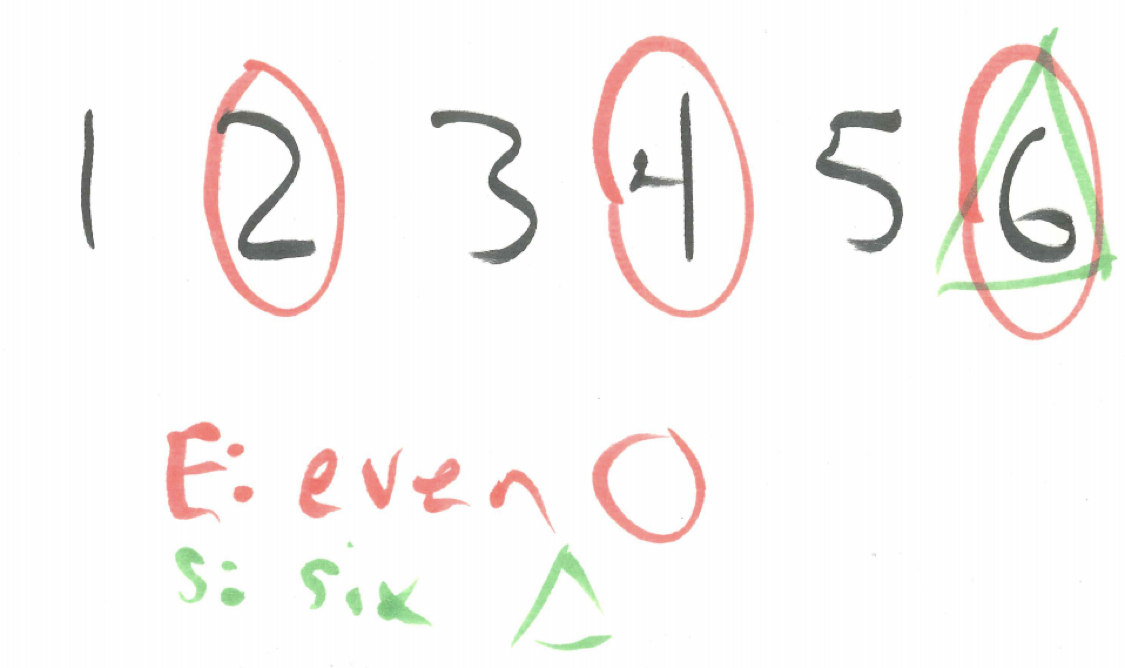 1 2 3 4 5 6
E: even
S: six